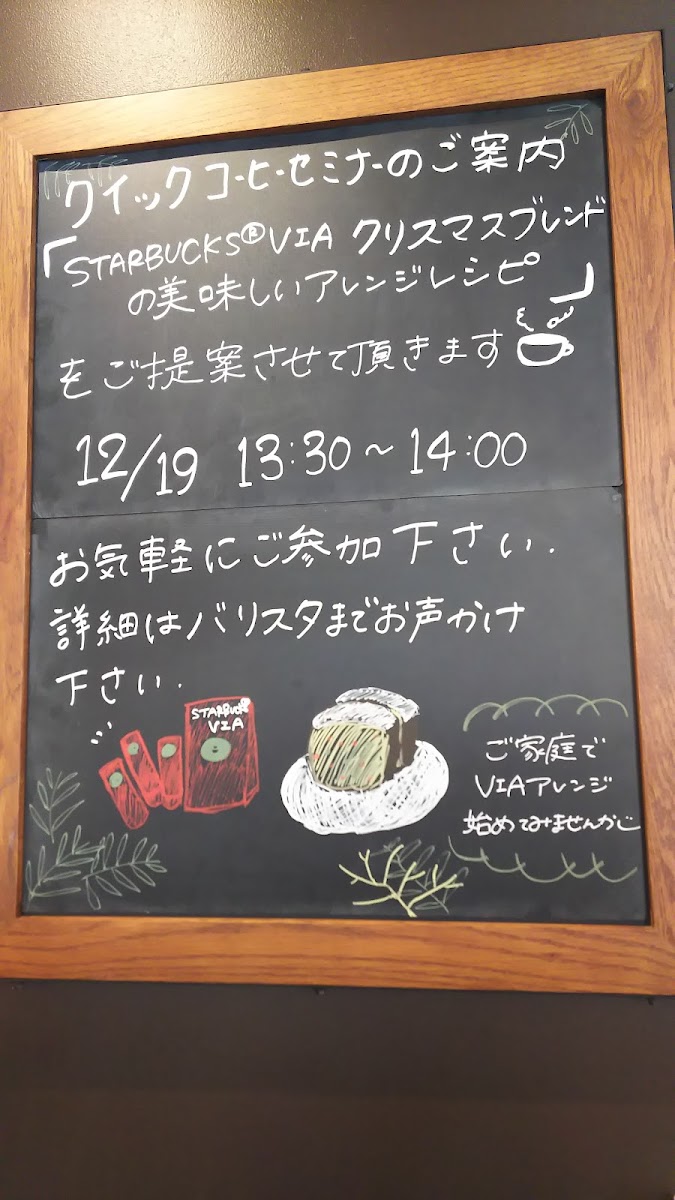 クイックコーヒーセミナーのご案内
「STARBUCKS®VIA クリスマスブレンド
の美味しいアレンジレシピ」
をご提案させて頂きます
12/19 13:30~14:00
お気軽にご参加下さい.
詳細はバリスタまでお声かけ
下さい.
STARBUCKS
VIA
ご家庭で
VIAアレンジ
始めてみませんか